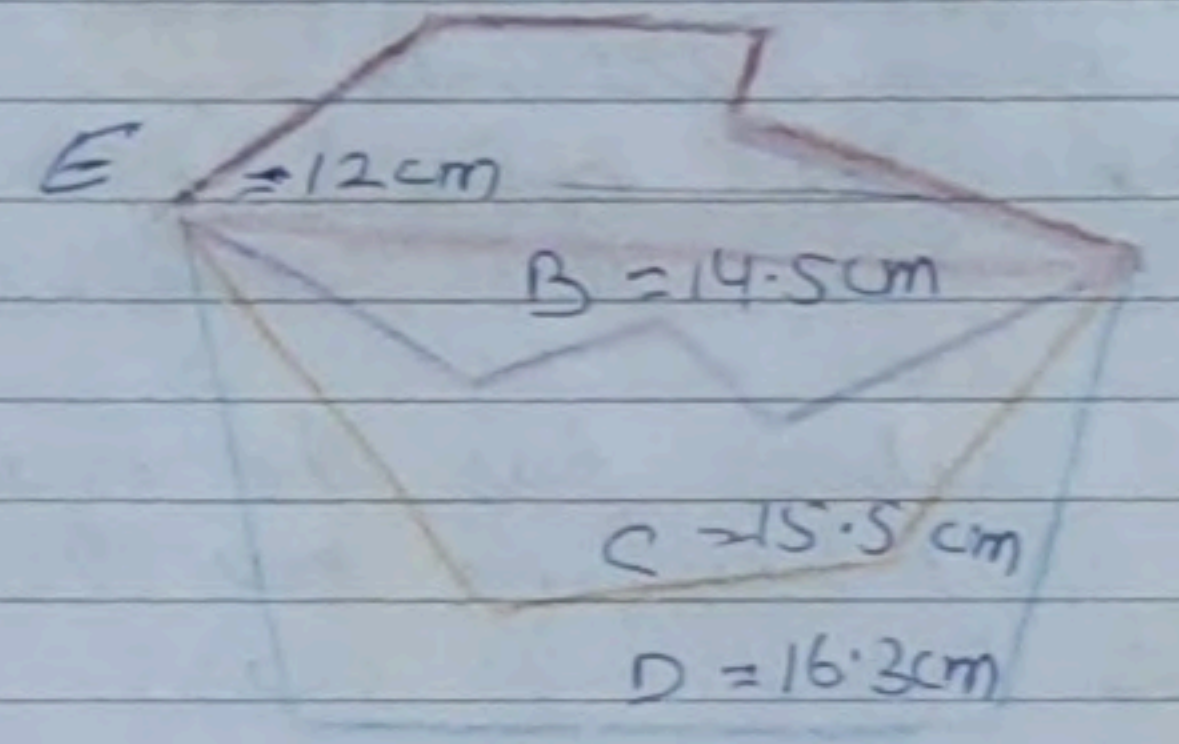 E = 12cm
B = 14.5cm
C = 15.5 cm
D = 16.3cm